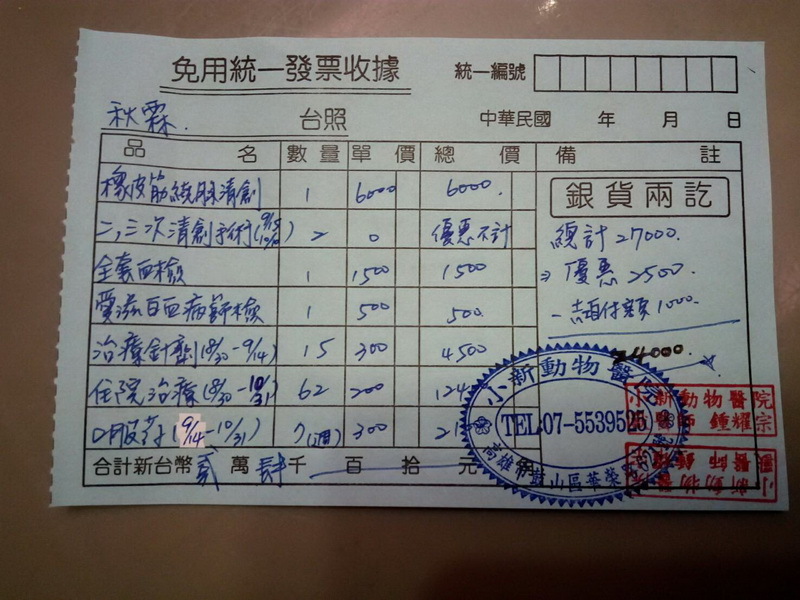 免用統一發票收據 統一編號
秋霖 台照 中華民國 年 月 日
品名 數量 單價 總價 備註
橡皮筋繞脖清創 1 6000 6000
二,三次清創手術( 2 0 優惠不計
全套血檢 1 1500 1500
愛滋白血病篩檢 1 500 500
治療針劑(8/30-9/14) 15 300 4500
住院治療(8/30-10/31) 62 200 124
口服葯(9/14-10/31) 7(週) 300 21
合計新台幣貳萬肆千 百 拾 元
銀貨兩訖
總計27000
優惠2500
1000
24000
小新動物醫院
TEL:07-5539525
高雄市鼓山區華榮路
小新動物醫院
醫師 鍾耀宗
小新動物醫院
醫師 鍾耀宗